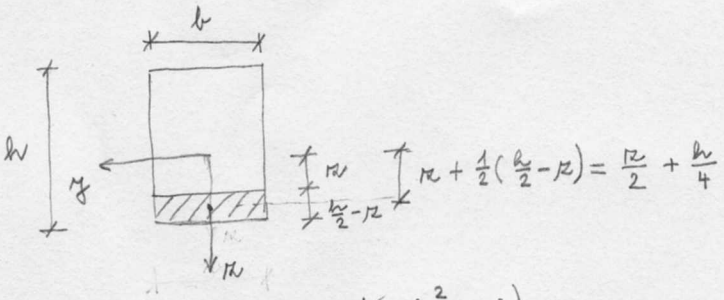 b
h
y
z
h/2 - z
z + 1/2 (h/2 - z) = z/2 + h/4
z